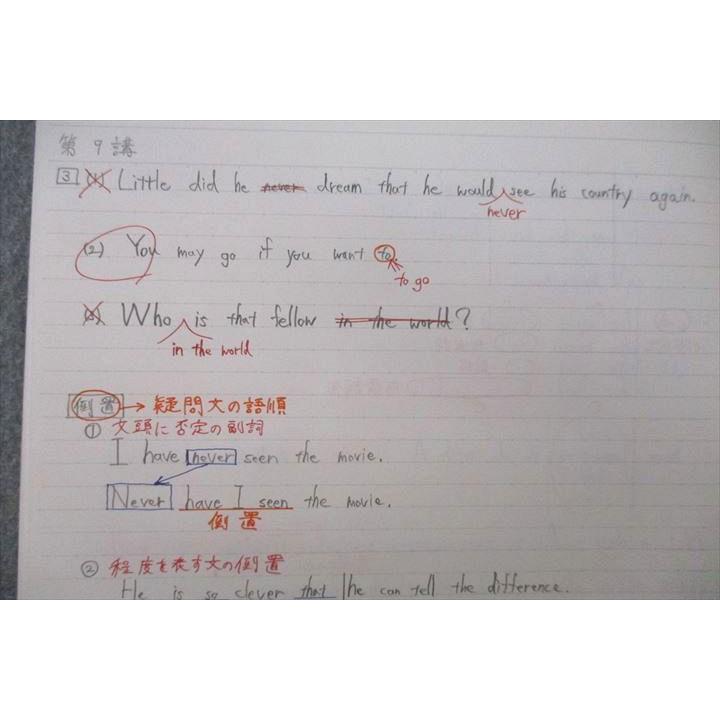 第9講
3 (1) Little did he never dream that he would see his country again.
never
(2) You may go if you want to.
to go
(3) Who is that fellow in the world?
in the world
倒置 → 疑問文の語順
① 文頭に否定の副詞
I have never seen the movie.
Never have I seen the movie.
倒置
② 程度を表す文の倒置
He is so clever that he can tell the difference.